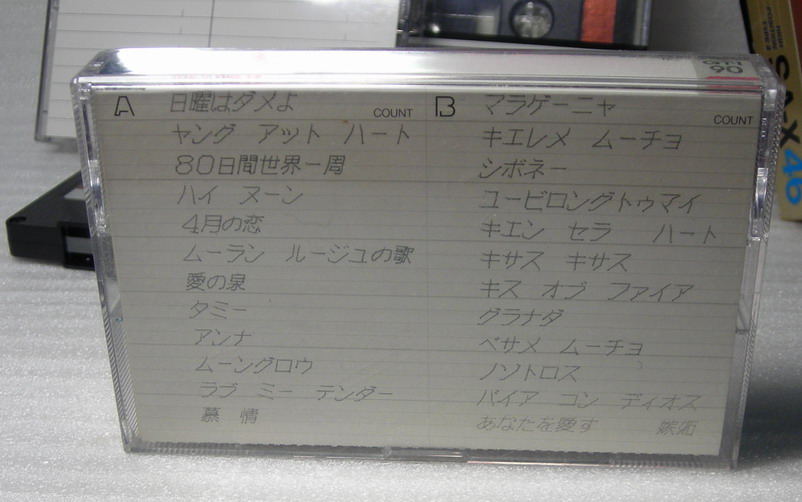 A
日曜はダメよ
COUNT
ヤング アット ハート
80日間世界一周
ハイ ヌーン
4月の恋
ムーラン ルージュの歌
愛の泉
タミー
アンナ
ムーングロウ
ラブ ミー テンダー
慕 情
B
マラゲーニャ
COUNT
キエレメ ムーチョ
シボネー
ユービロングトゥマイ
キエン セラ ハート
キサス キサス
キス オブ ファイア
グラナダ
ベサメ ムーチョ
ノソトロス
バイア コン ディオス
あなたを愛す 嫉妬
90
SA-X 46